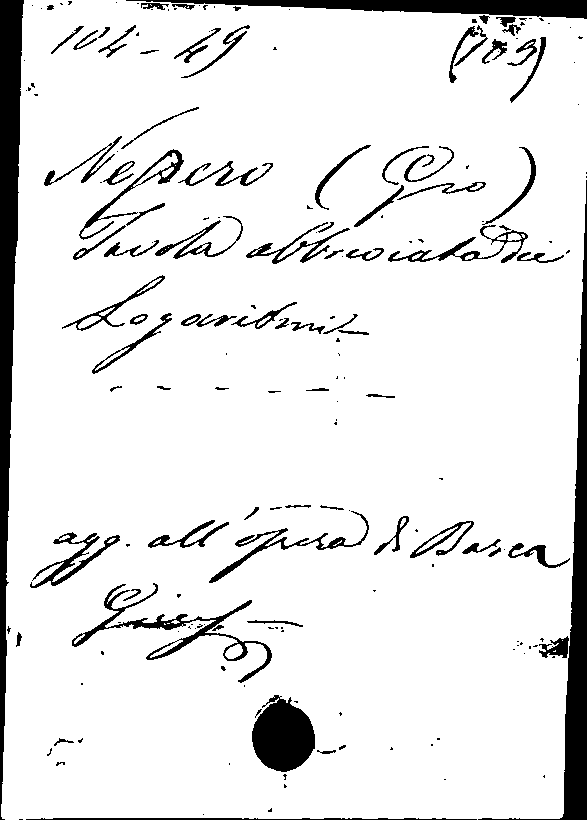 104-49 (709)
Neperο (Gio)
Tavola abbreviata dei
Logaritmi
- - - - - -
agg. all'opera di Barca
Gius